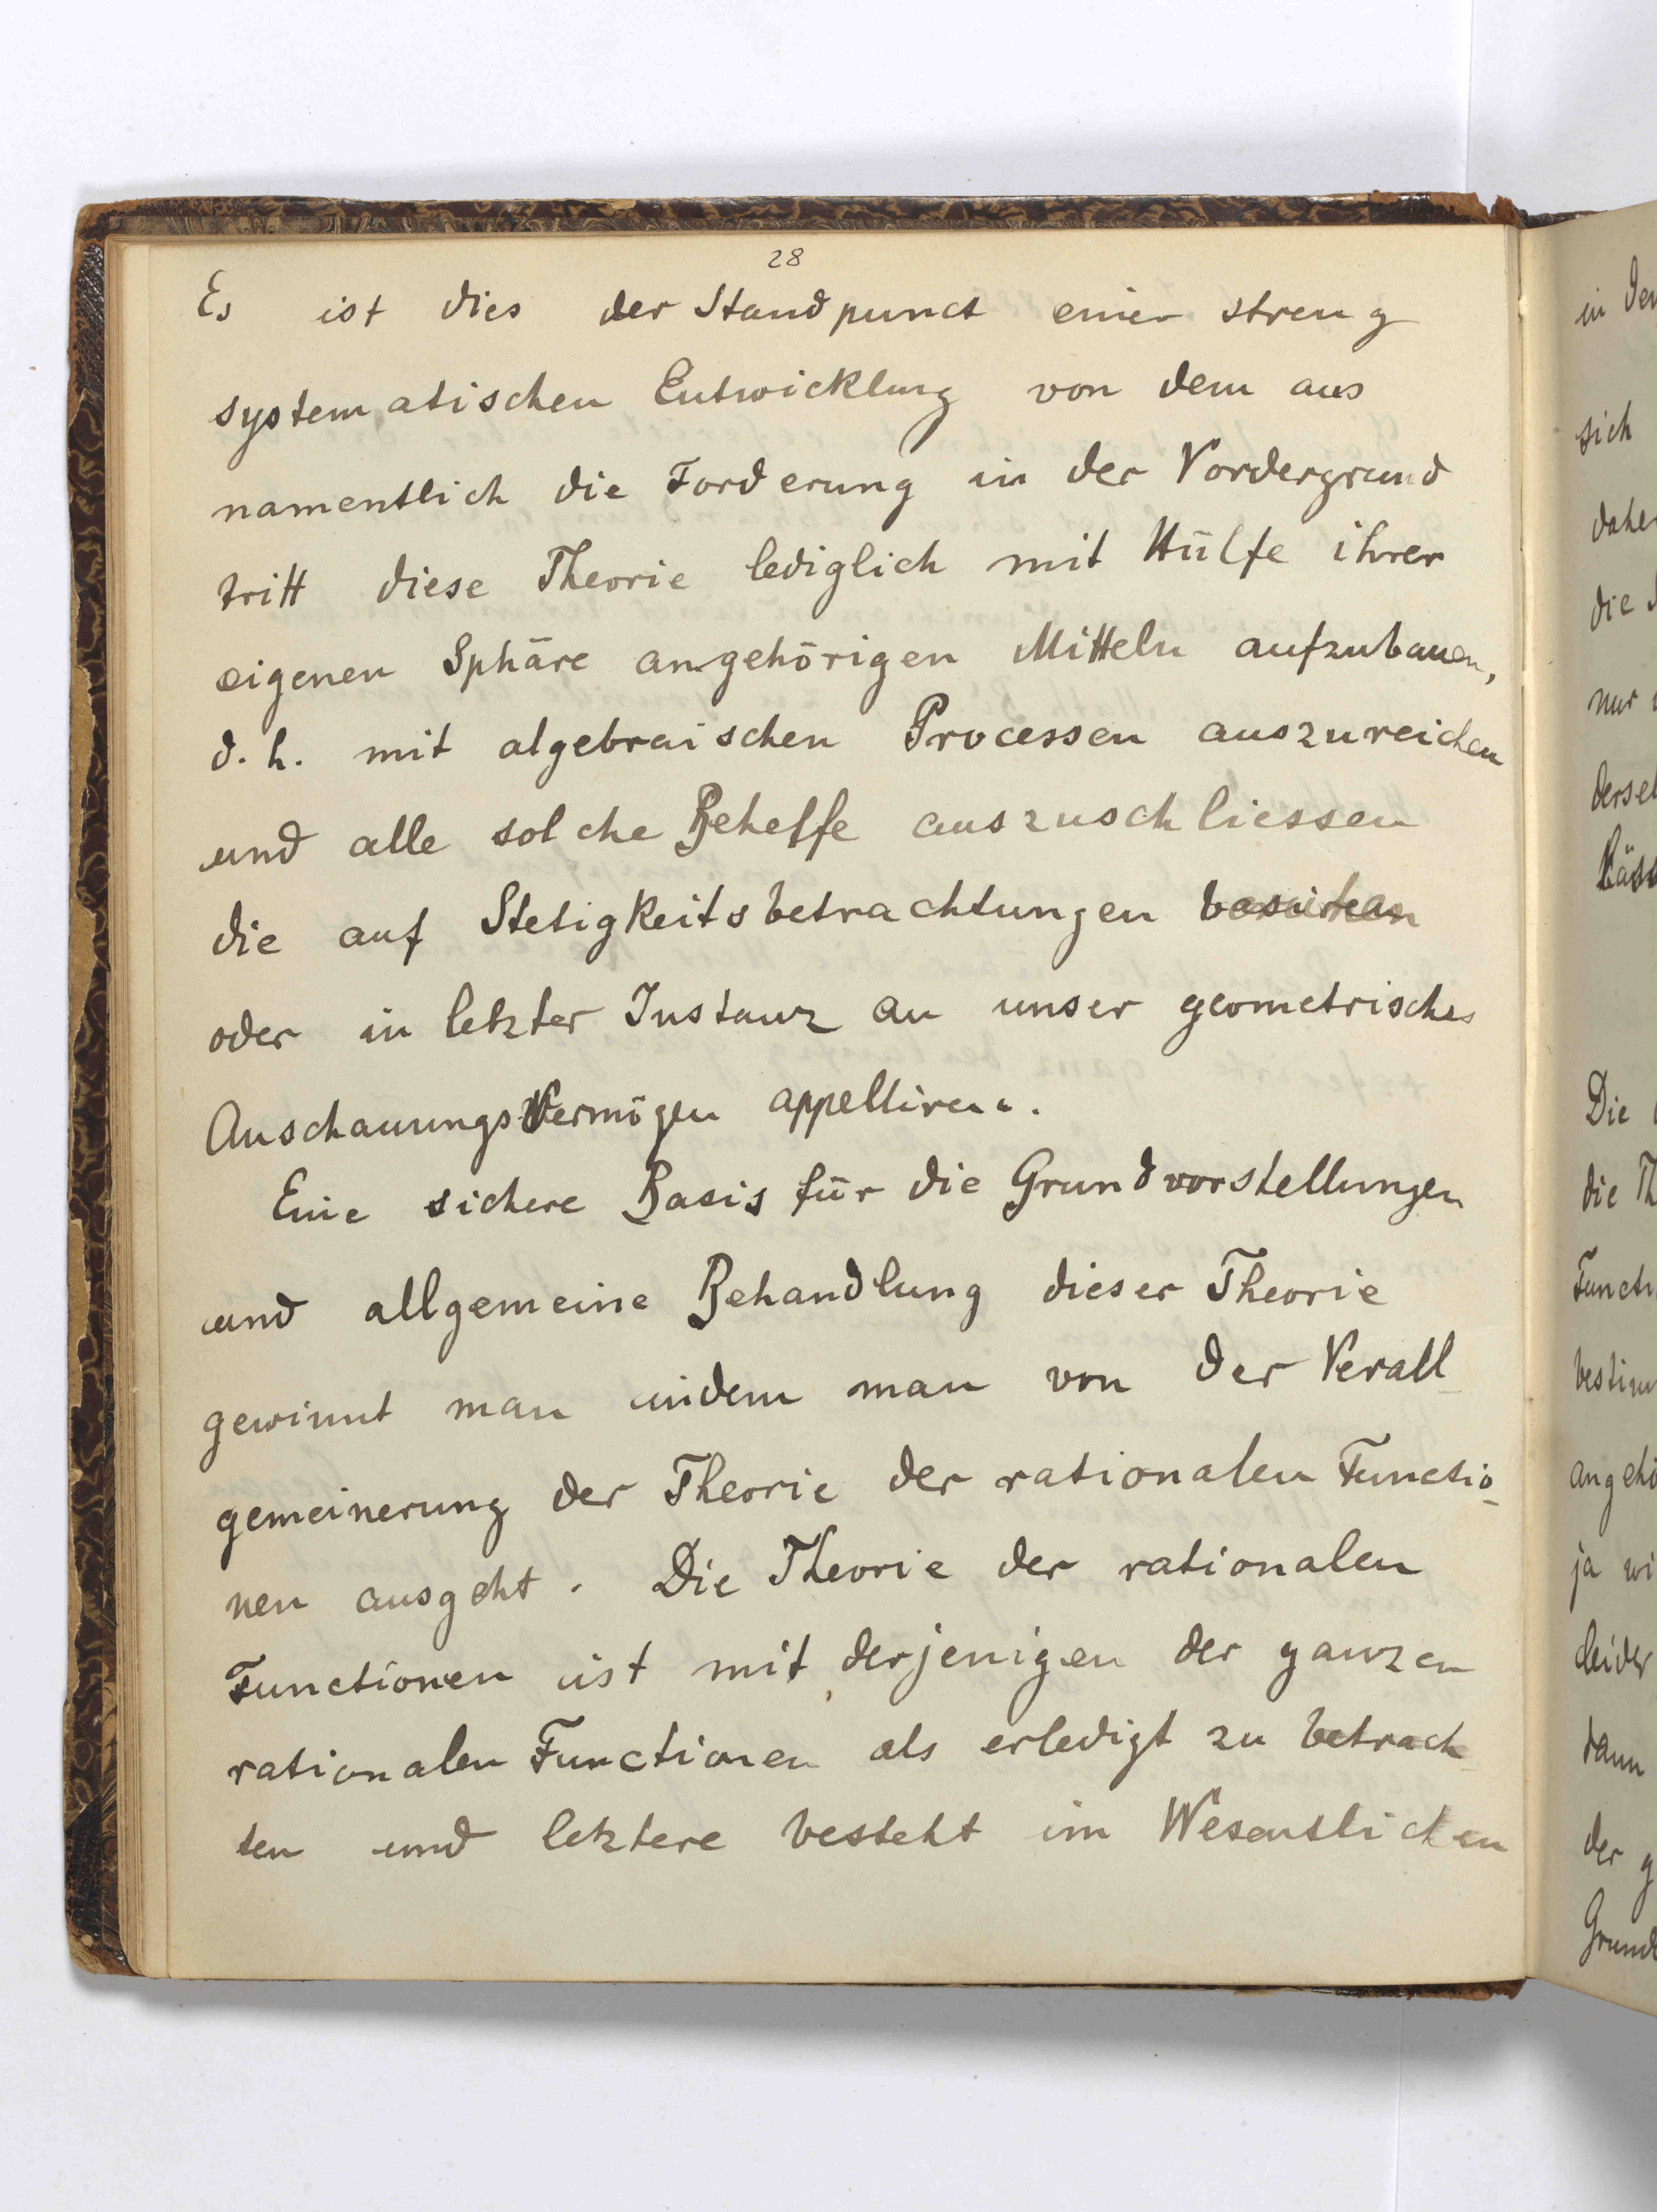 28
Es ist dies der Standpunct einer streng
systematischen Entwicklung von dem aus
namentlich die Forderung in der Vordergrund
tritt diese Theorie lediglich mit Hülfe ihrer
eigenen Sphäre angehörigen Mitteln aufzubauen,
d. h. mit algebraischen Processen auszureichen
und alle solche Behelfe auszuschliessen
die auf Stetigkeitsbetrachtungen
oder in letzter Instanz an unser geometrisches
AnschauungsVermögen appelliren.
Eine sichere Basis für die Grundvorstellungen
und allgemeine Behandlung dieser Theorie
gewinnt man indem man von der Verall-
gemeinerung der Theorie der rationalen Functio-
nen ausgeht. Die Theorie der rationalen
Functionen ist mit derjenigen der ganzen
rationalen Functionen als erledigt zu betrach-
ten und letztere besteht im Wesentlichen
in
sich
die
nur
Die
die Th
ja
leider
dann
der g